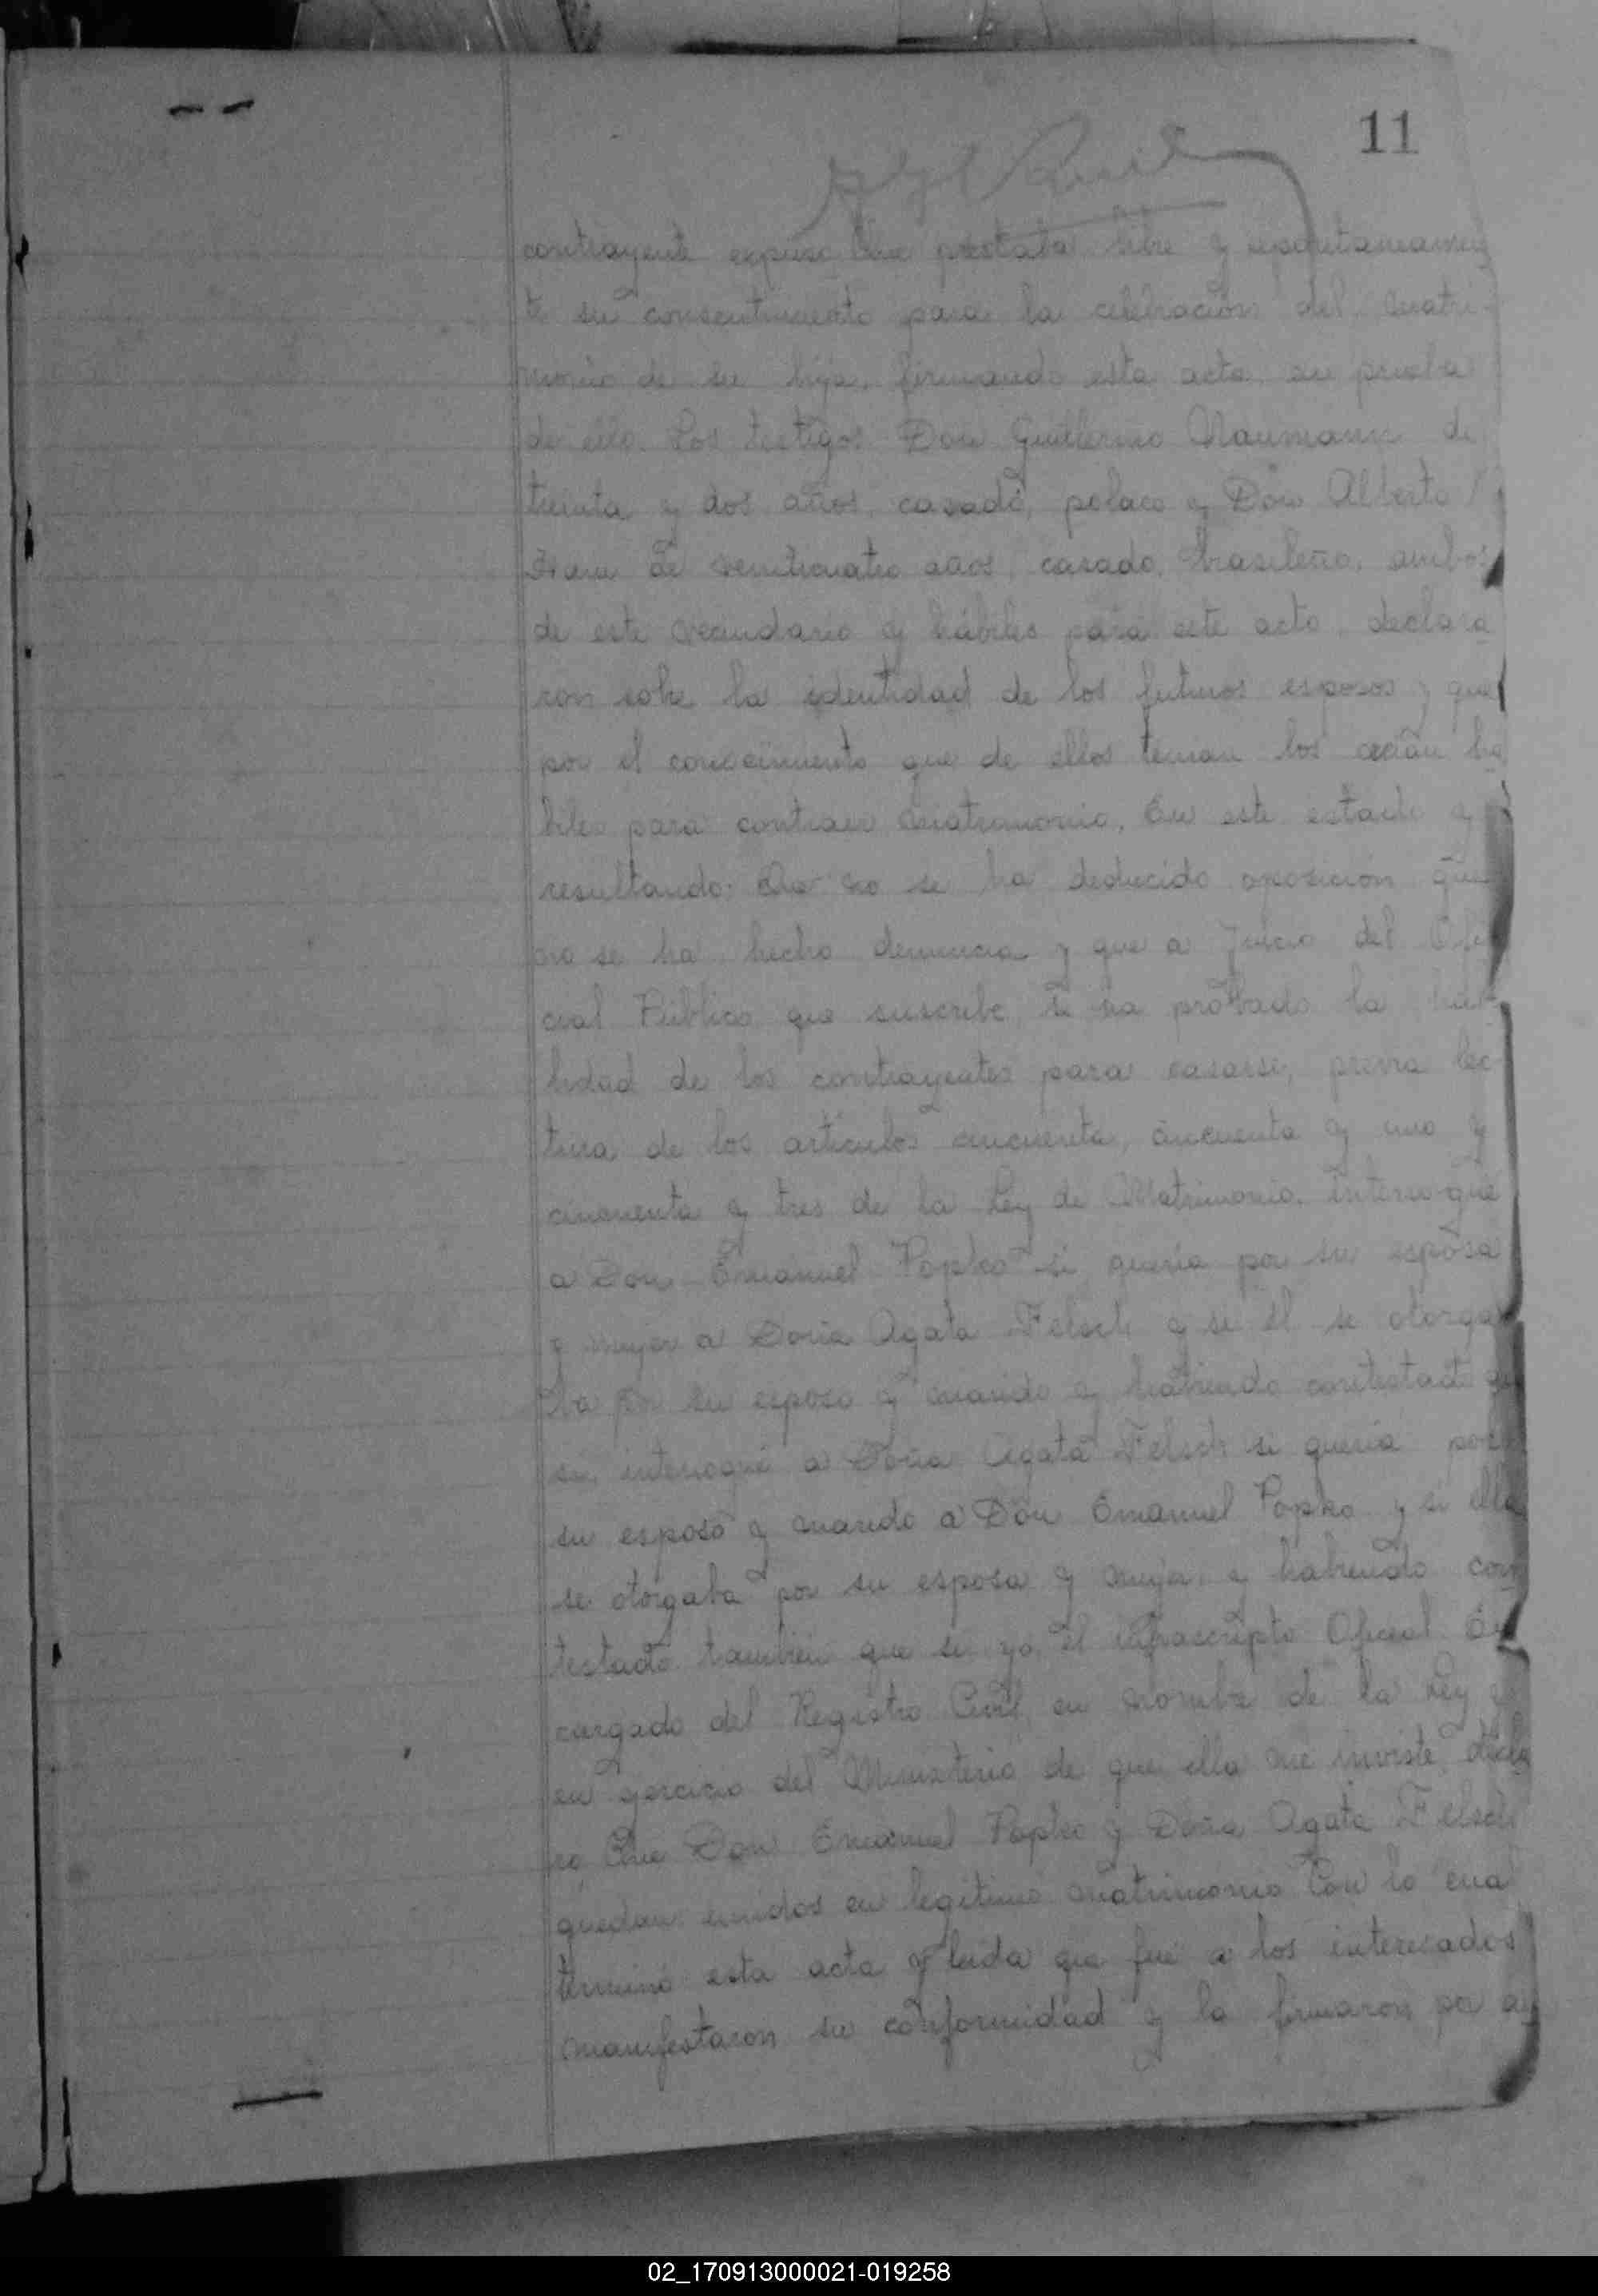 11
contrayente expuso Que prestaba libre y espontaneamen
te su consentimiento para la celebración del matri-
monio de su hija, firmando esta acta en prueba
de ello. Los testigos Don Guillermo Naumann de
treinta y dos años, casado, polaco y Don Alberto
de veinticuatro años, casado, brasileño, ambos
de este vecindario y hábiles para este acto, declara
ron sobre la identidad de los futuros esposos y que
por el conocimiento que de ellos tenian los creian há
biles para contraer matrimonio. En este estado y
resultando: Que no se ha deducido oposición que
no se ha hecho denuncia y que a juicio del Ofi
cial Público que suscribe se ha probado la habi
lidad de los contrayentes para casarse, previa lec
tura de los artículos cincuenta, cincuenta y uno y
cincuenta y tres de la Ley de Matrimonio, interrogué
a Don Emanuel Popko si queria por su esposa
y mujer a Doña Agata Felsch y si él se otorga
ba por su esposo y marido y habiendo contestado que
si, interrogué a Doña Agata Felsch si queria por
su esposo y marido a Don Emanuel Popko y si ella
se otorgaba por su esposa y mujer, y habiendo con
testado también que si yo, el infrascripto Oficial En
cargado del Registro Civil, en nombre de la Ley y
en ejercicio del Ministerio de que ella me inviste, decla
ro Que Don Emanuel Popko y Doña Agata Felsch
quedan unidos en legitimo matrimonio Con lo cual
terminó esta acta y leida que fué a los interesados
manifestaron su conformidad y la firmaron por an
02_170913000021-019258